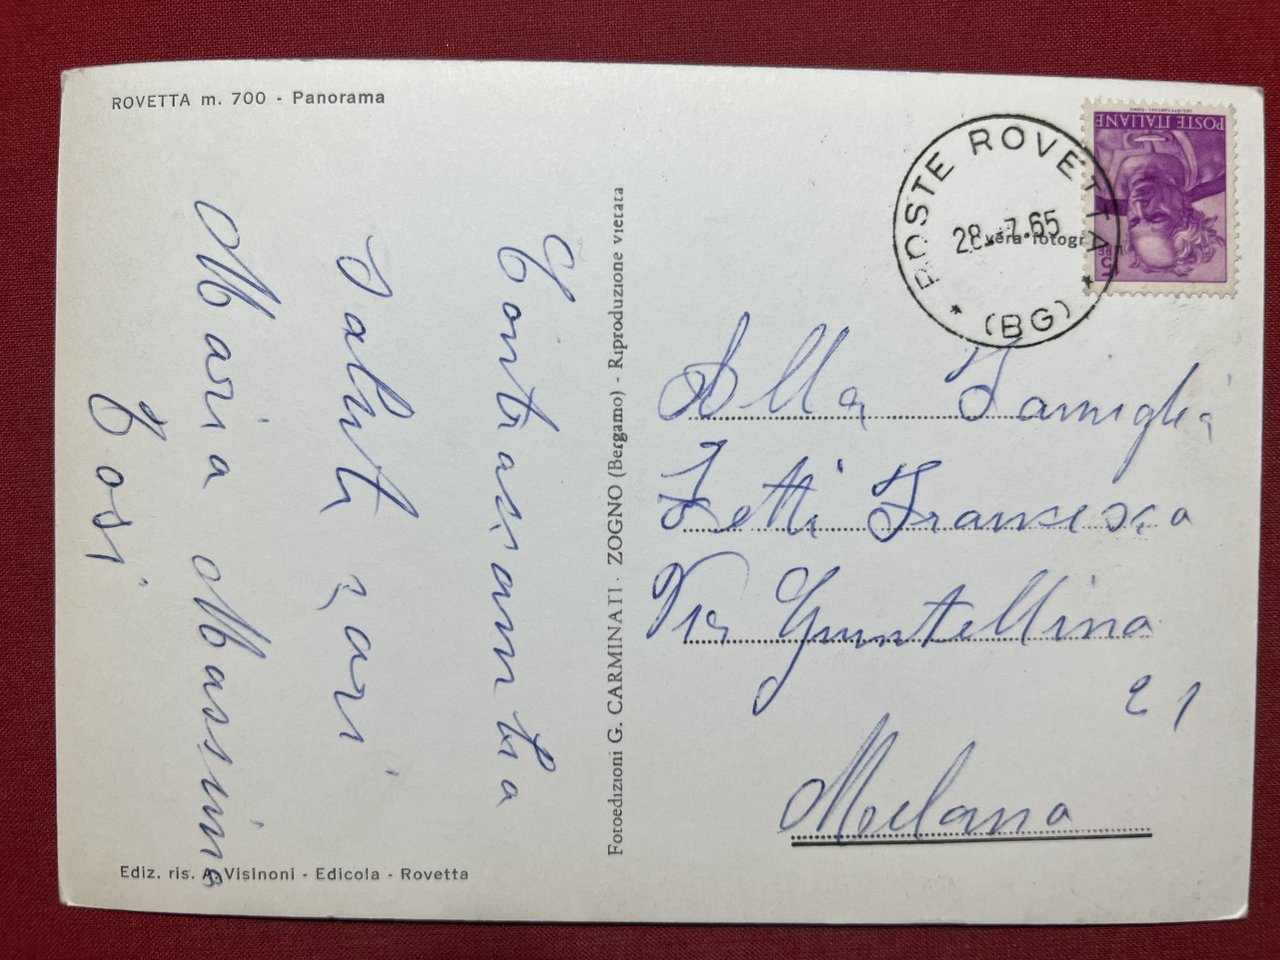 ROVETTA m. 700 - Panorama
Con
Saluti cari
Maria Massimo
Tosi
Ediz. ris. A. Visinoni - Edicola - Rovetta
Fotoedizioni G. CARMINATI - ZOGNO (Bergamo) - Riproduzione vietata
POSTE ROVETTA
28.7.65
(BG)
vera fotogr
POSTE ITALIANE
LIRE
Alla Famiglia
Francesca
Via
21
Milano